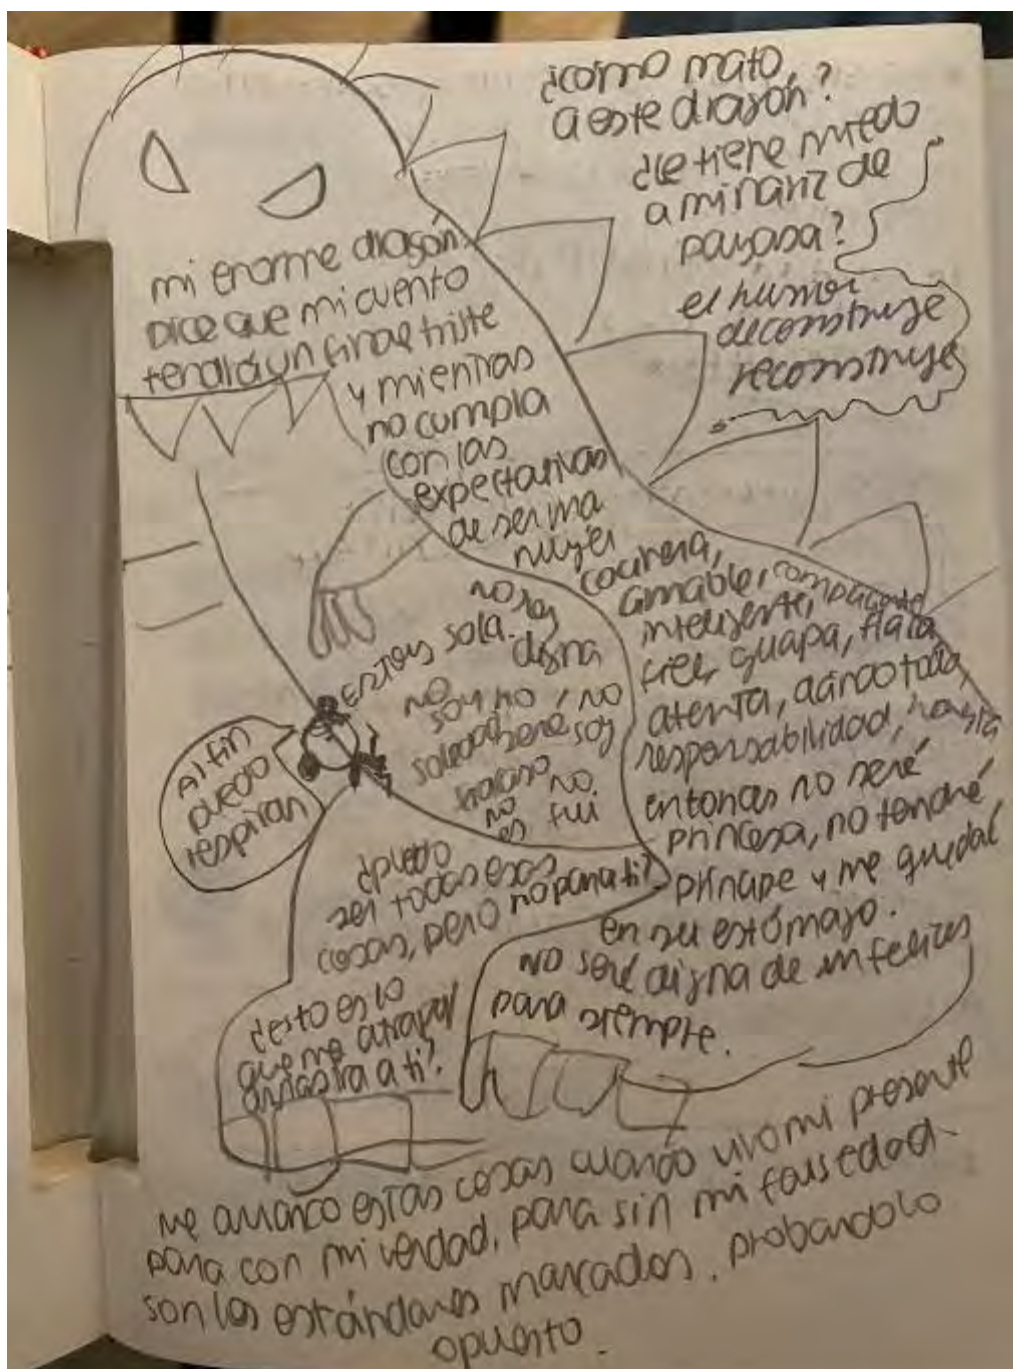 ¿cómo mato
a este dragón?
¿le tiene miedo
a mi nariz de
payasa?
el humor
deconstruye
reconstruye
mi enorme dragón
dice que mi cuento
tendrá un final triste
y mientras
no cumpla
con las
expectativas
de ser una
mujer
cocinera,
amable, complaciente
inteligente,
fiel, guapa, flaca,
atenta, dando toda
responsabilidad,
entonces no seré
princesa, no tendré
príncipe y me quedaré
en su estómago.
no seré digna de un felices
para siempre.
estoy sola. no soy
digna
no
soy no, no
soledad seré soy
fracaso no.
no
es fui
Al fin
puedo
respirar
¿puedo
ser todas esas
cosas, pero no para ti?
¿esto es lo
que me atrapa/
arrastra a ti?
me arranco estas cosas cuando vivo mi presente
para con mi verdad, para sin mi falsedad.
son los estándares marcados. probándolo
opuesto.